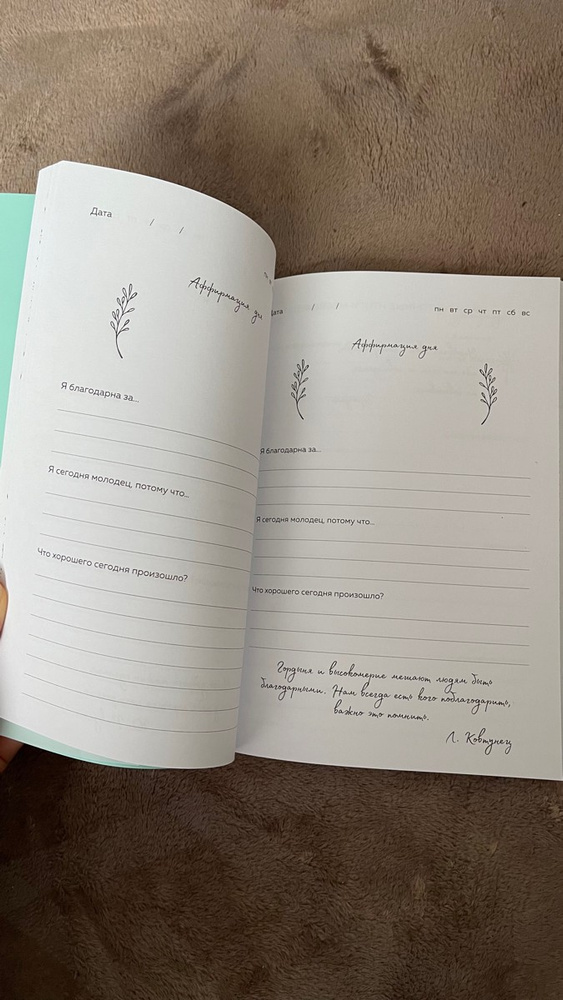 Дата / /
Аффирмация дн
Я благодарна за...
Я сегодня молодец, потому что...
Что хорошего сегодня произошло?
Дата / /
пн вт ср чт пт сб вс
Аффирмация дня
Я благодарна за...
Я сегодня молодец, потому что...
Что хорошего сегодня произошло?
Гордыня и высокомерие мешают людям быть
благодарными. Нам всегда есть кого поблагодарить,
важно это помнить.
Л. Ковтунец